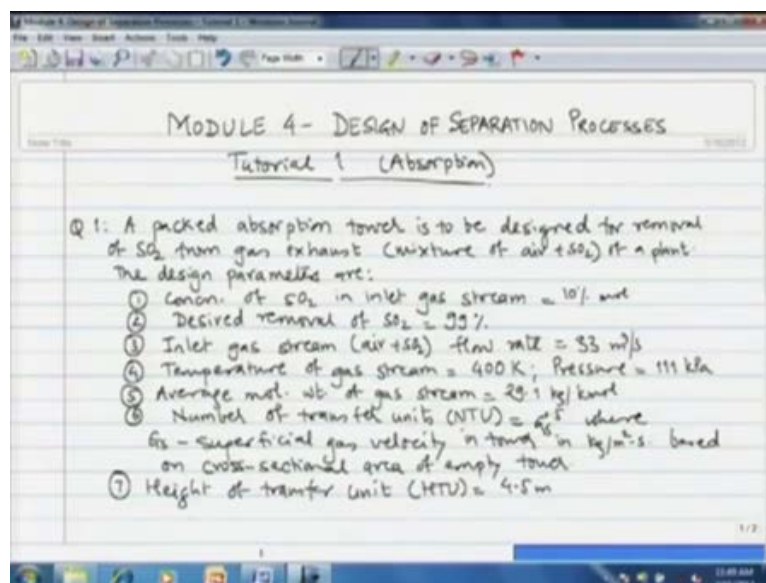 Module 4 Design of Separation Processes - Tutorial 1 - Windows Journal
File Edit View Insert Actions Tools Help
Page Width
MODULE 4 - DESIGN OF SEPARATION PROCESSES
Note Title
Tutorial 1 (Absorption)
Q 1: A packed absorption tower is to be designed for removal
of SO2 from gas exhaust (mixture of air + SO2) of a plant.
The design parameters are:
① Concn. of SO2 in inlet gas stream = 10% mol
② Desired removal of SO2 = 99%
③ Inlet gas stream (air + SO2) flow rate = 33 m3/s
④ Temperature of gas stream = 400 K; Pressure = 111 kPa
⑤ Average mol. wt. of gas stream = 29.1 kg/kmol
⑥ Number of transfer units (NTU) = where
Gs - superficial gas velocity in tower in kg/m2.s. based
on cross-sectional area of empty tower.
⑦ Height of transfer unit (HTU) = 4.5 m
1/2
1
11:49 AM